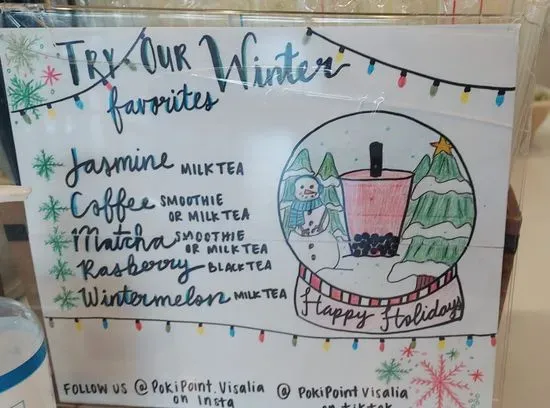 Try Our Winter
favorites
Jasmine MILK TEA
Coffee SMOOTHIE
OR MILK TEA
Matcha SMOOTHIE
OR MILK TEA
Rasberry BLACK TEA
Wintermelon MILK TEA
Happy Holidays
FOLLOW US @PokiPoint.Visalia
on Insta
@ PokiPoint Visalia
on tiktok